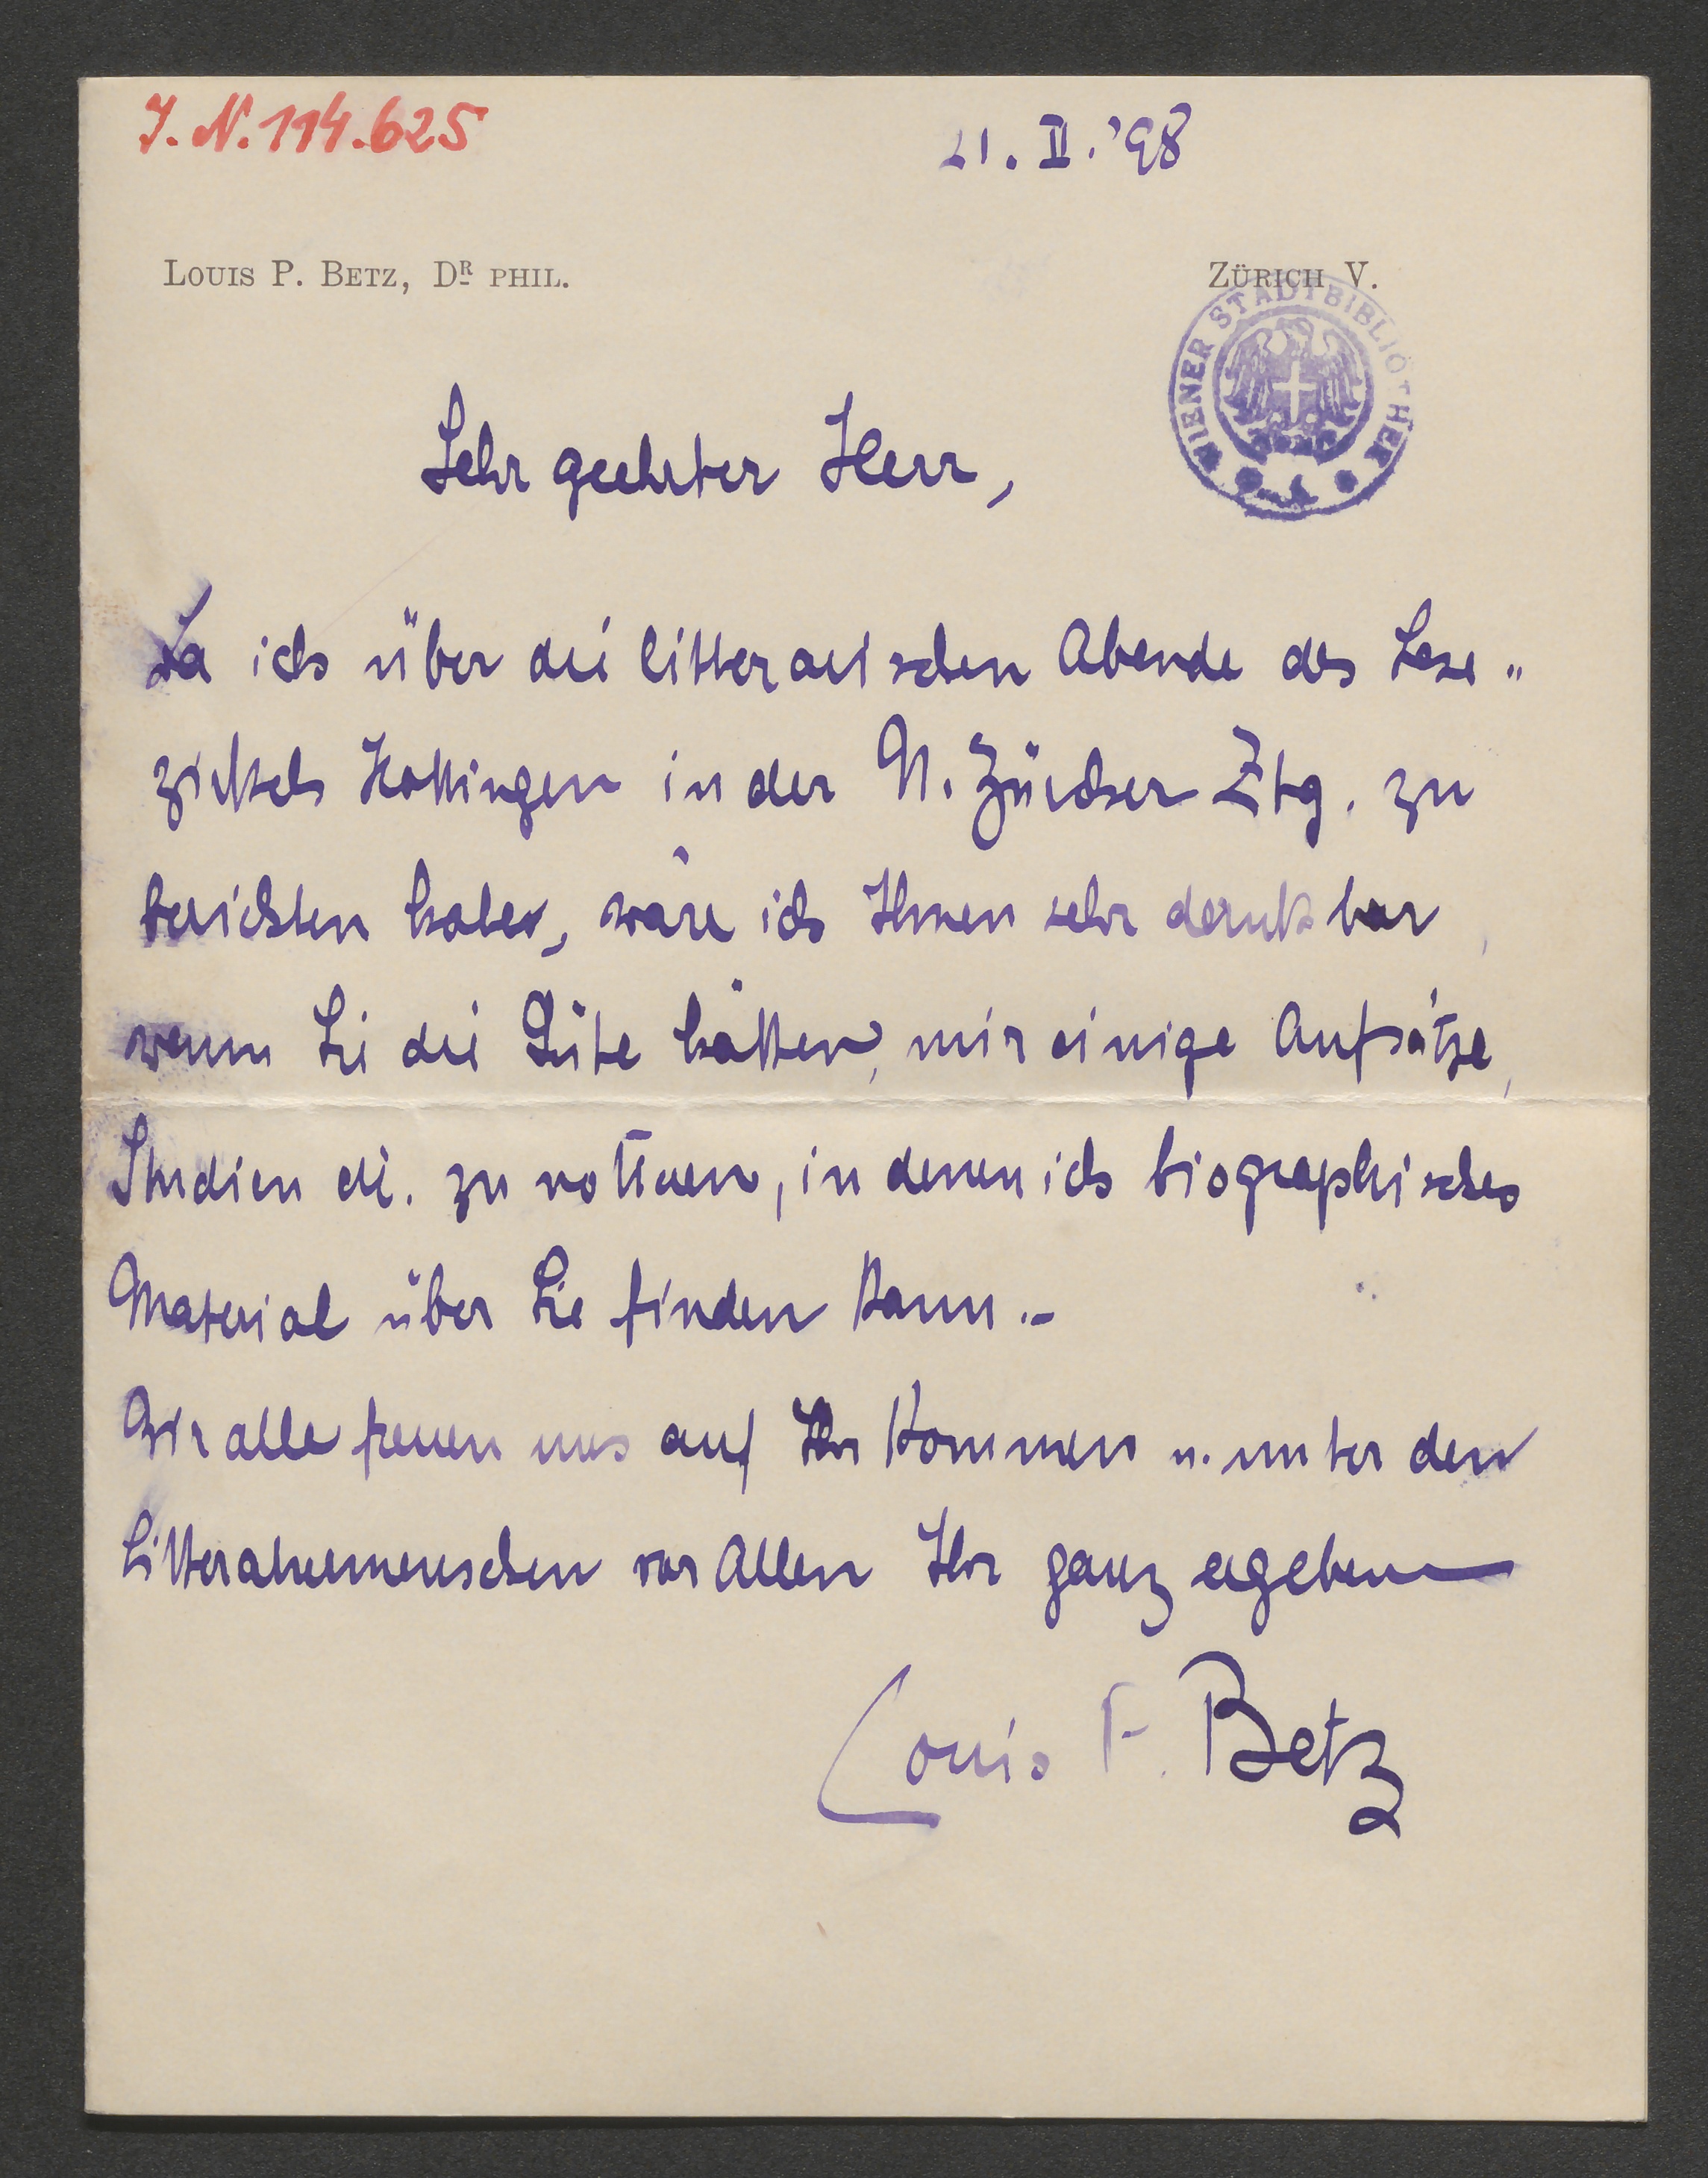 J. N. 114.625
21. II. '98
LOUIS P. BETZ, DR PHIL.
ZÜRICH V.
WIENER STADTBIBLIOTHEK
Sehr geehrter Herr,
Da ich über die litterarischen Abende des Lese„
zirkels Hottingen in der N. Zürcher Ztg. zu
berichten habe, wäre ich Ihnen sehr dankbar,
wenn Sie die Güte hätten, mir einige Aufsätze,
Studien etc. zu notieren, in denen ich biographisches
Material über Sie finden kann.–
Wir alle freuen uns auf Ihr Kommen u. unter den
Litteraturmenschen vor Allen Ihr ganz ergebener
Louis P. Betz